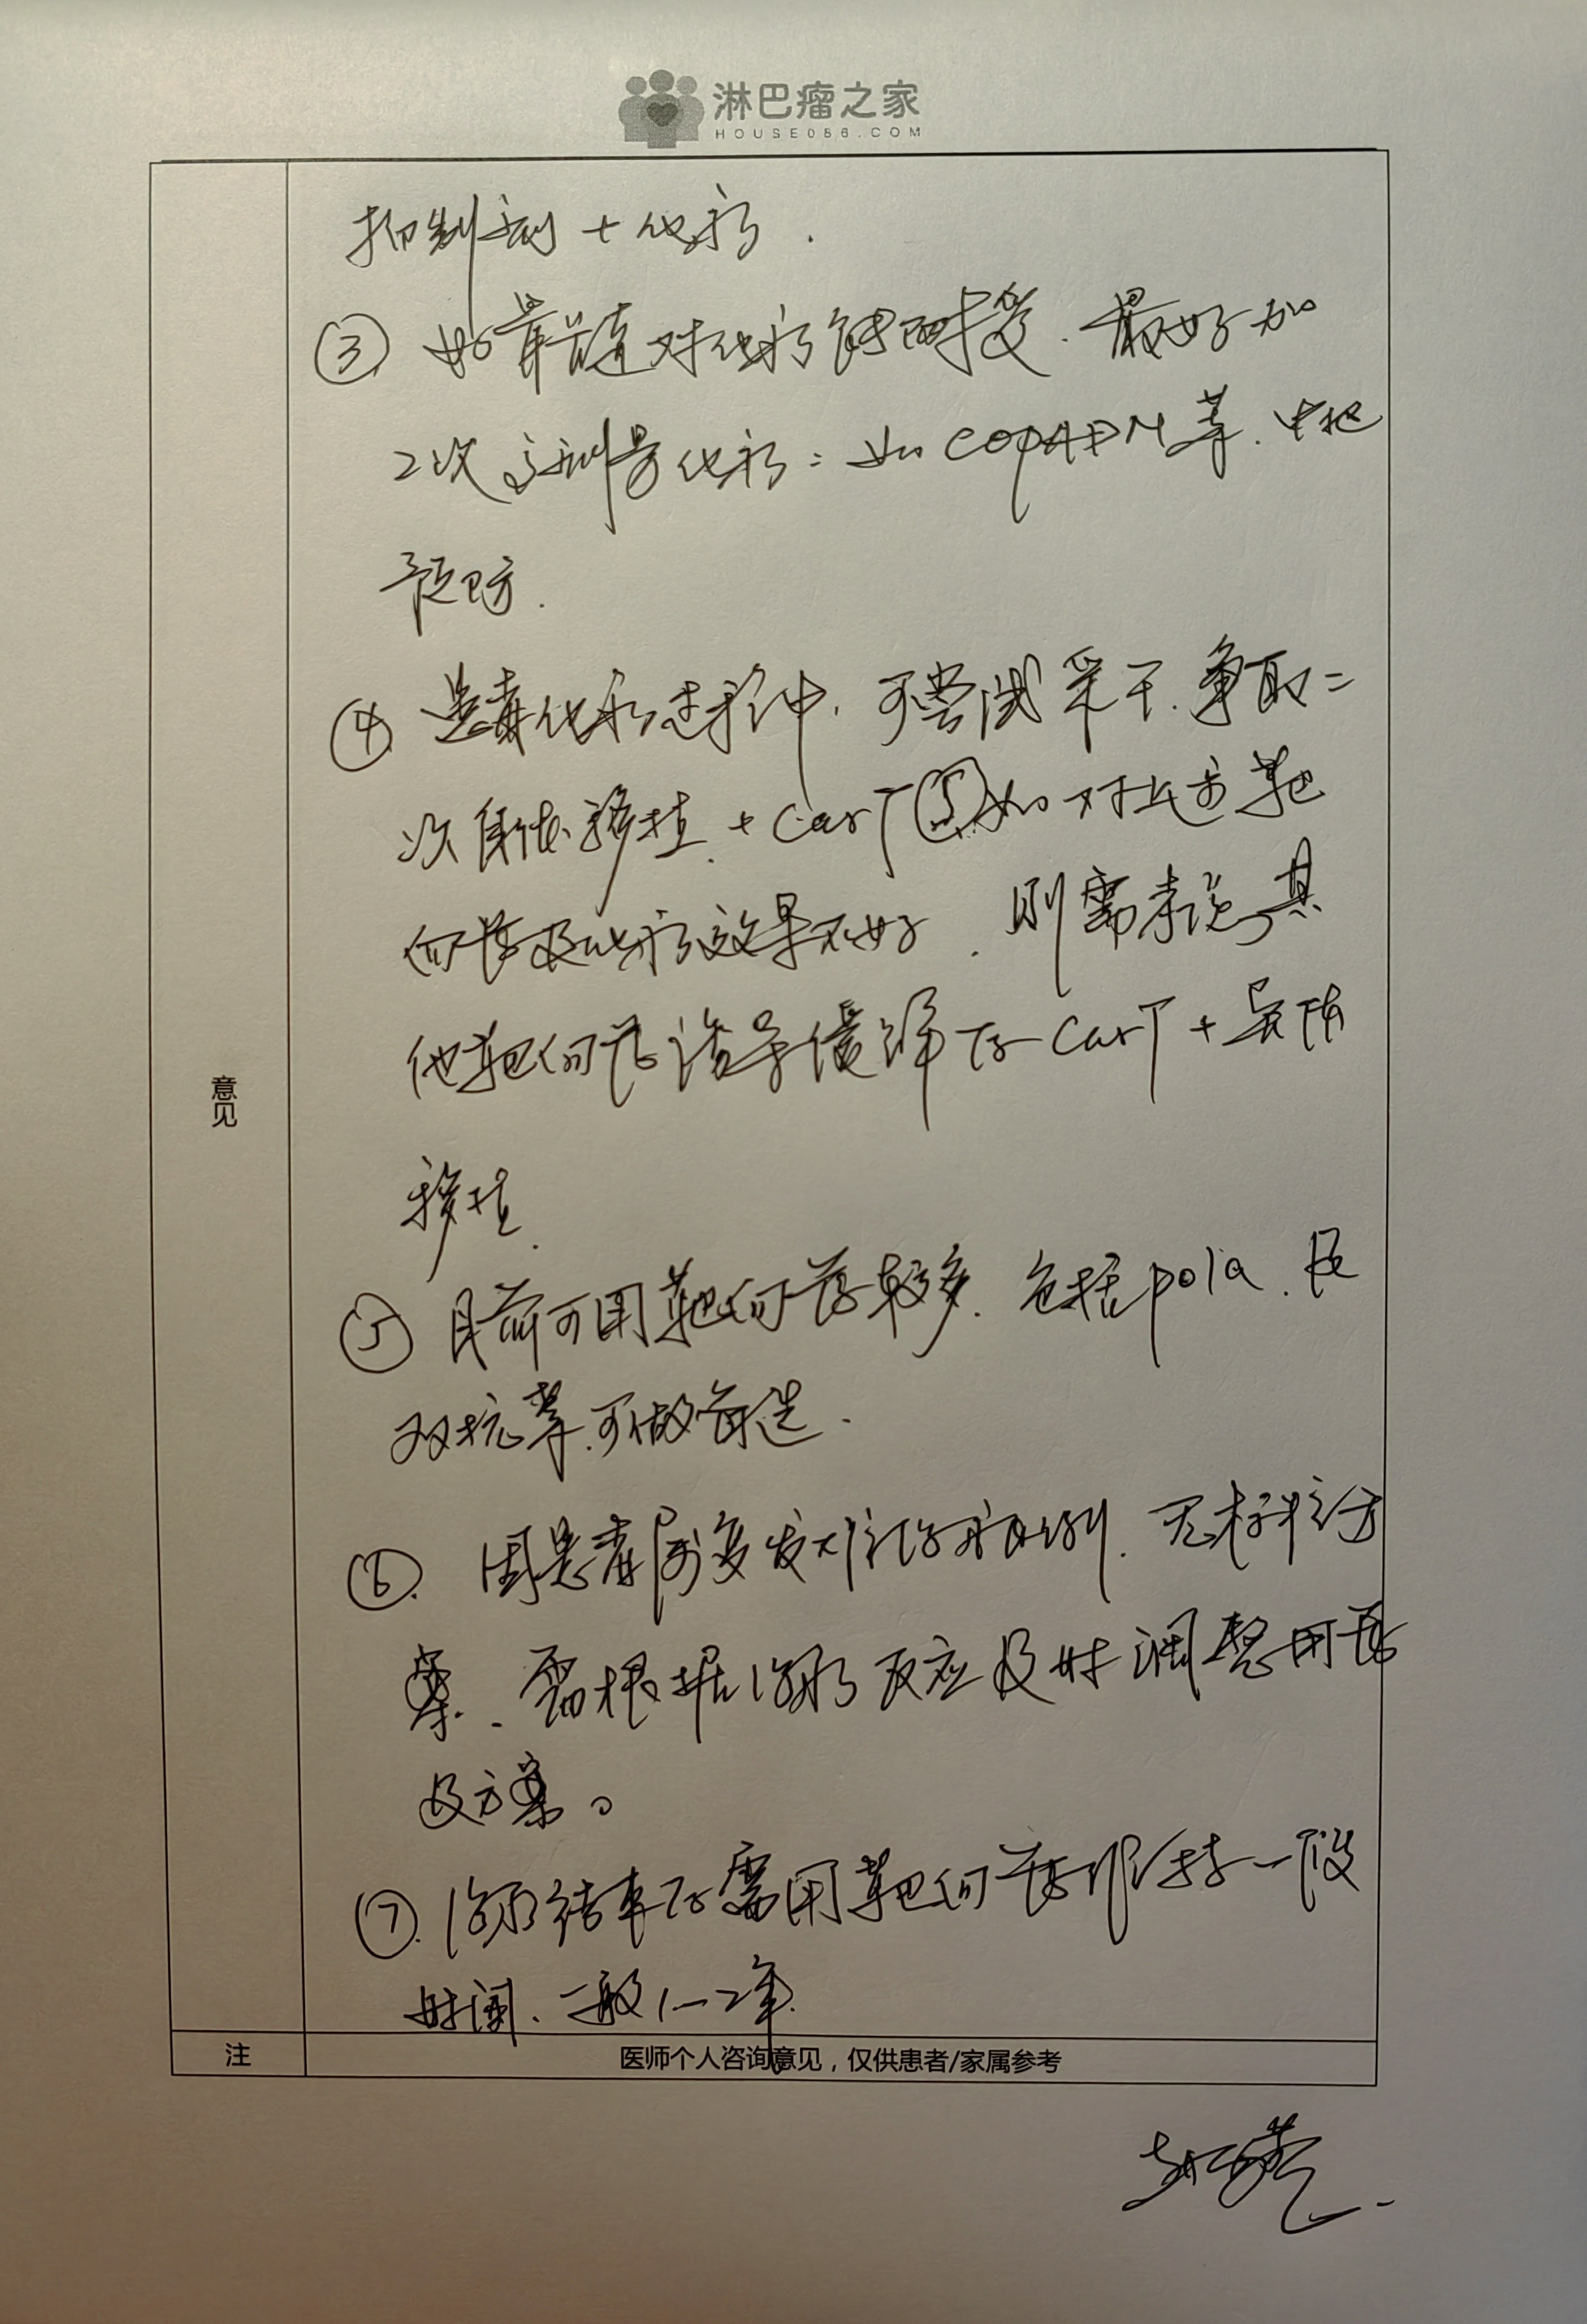 淋巴瘤之家
HOUSE086.COM
抑制剂 + 化疗.
③ 如骨髓对化疗能耐受.最好加
2次大剂量化疗:如COPADM等.中枢
预防.
④ 患者化疗过程中.可尝试采干.争取二
次自体移植.+CarT⑤如对上述靶
向药及化疗效果不好.则需考虑其
他靶向药诱导缓解后CarT+异体
移植.
⑤ 目前可用靶向药较多.包括pola.及
双抗等.可做首选.
⑥. 因患者属多发难治病例.无标准方
案.需根据治疗反应及时调整用药
及方案。
⑦. 治疗结束后需用靶向药维持一段
时间.一般1-2年.
意见
注
医师个人咨询意见,仅供患者/家属参考